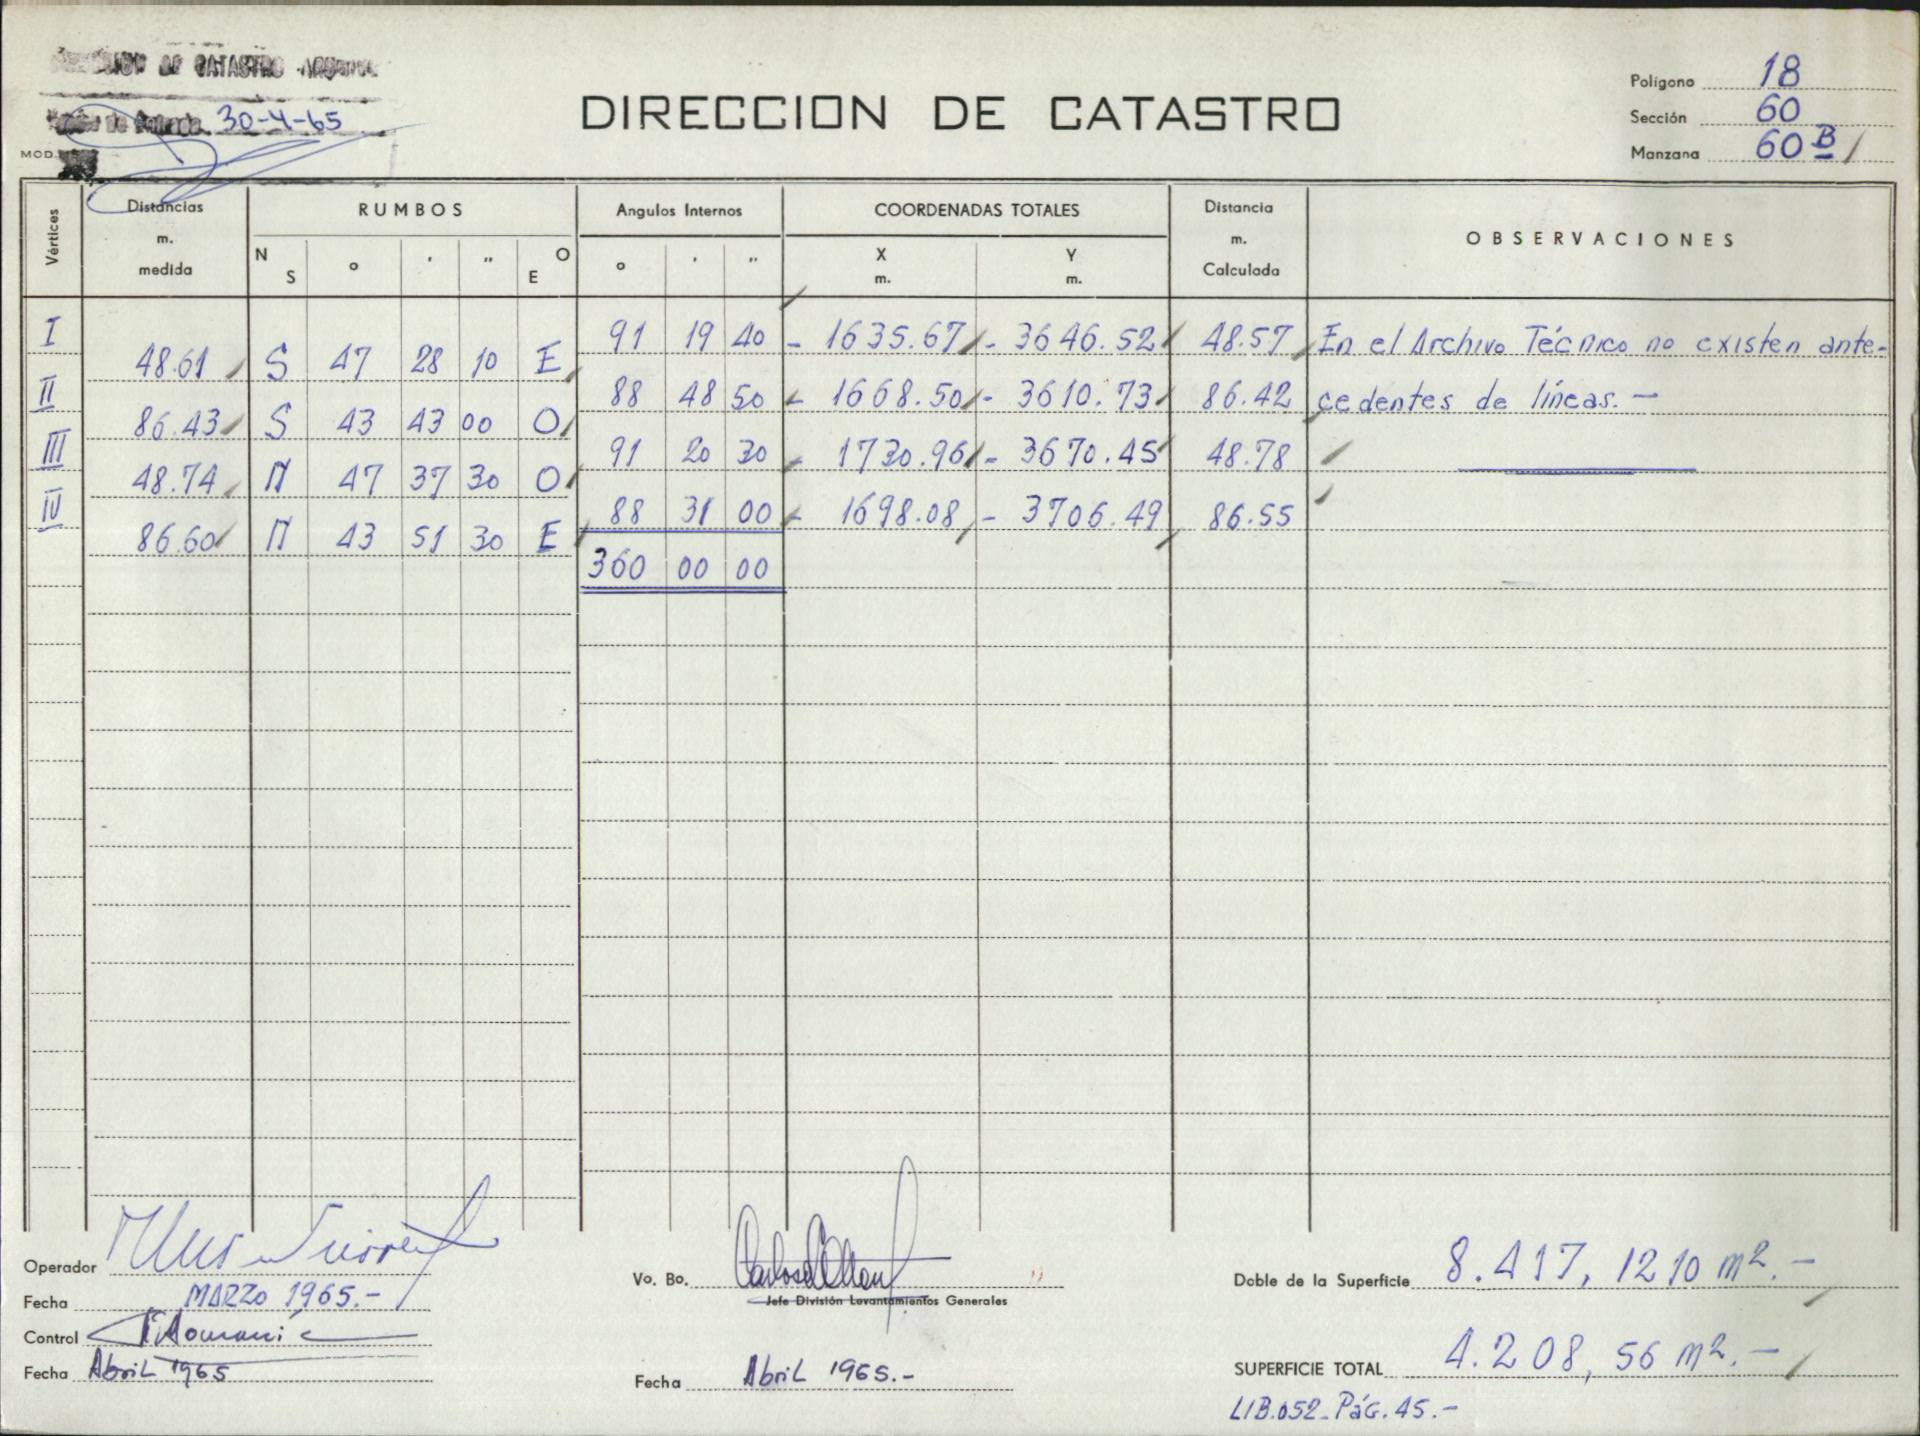 DE CATASTRO
30-4-65
DIRECCION DE CATASTRO
Polígono 18
Sección 60
Manzana 60 B
MOD.
Vértices
Distancias m. medida
RUMBOS
N S o ' " O E
Angulos Internos
o ' "
COORDENADAS TOTALES
X m. Y m.
Distancia m. Calculada
OBSERVACIONES
I 91 19 40 - 1635.67 - 3646.52 48.57 En el Archivo Técnico no existen ante-
48.61 S 47 28 10 E
II 88 48 50 - 1668.50 - 3610.73 86.42 cedentes de líneas.-
86.43 S 43 43 00 O
III 91 20 30 - 1730.96 - 3670.45 48.78
48.74 N 47 37 30 O
IV 88 31 00 - 1698.08 - 3706.49 86.55
86.60 N 43 51 30 E
360 00 00
Operador
Fecha MARZO 1965.-
Control
Fecha Abril 1965
Vo. Bo.
Jefe División Levantamientos Generales
Fecha Abril 1965.-
Doble de la Superficie 8.417,1210 m2.-
SUPERFICIE TOTAL 4.208,56 m2.-
LIB.052-Pág.45.-